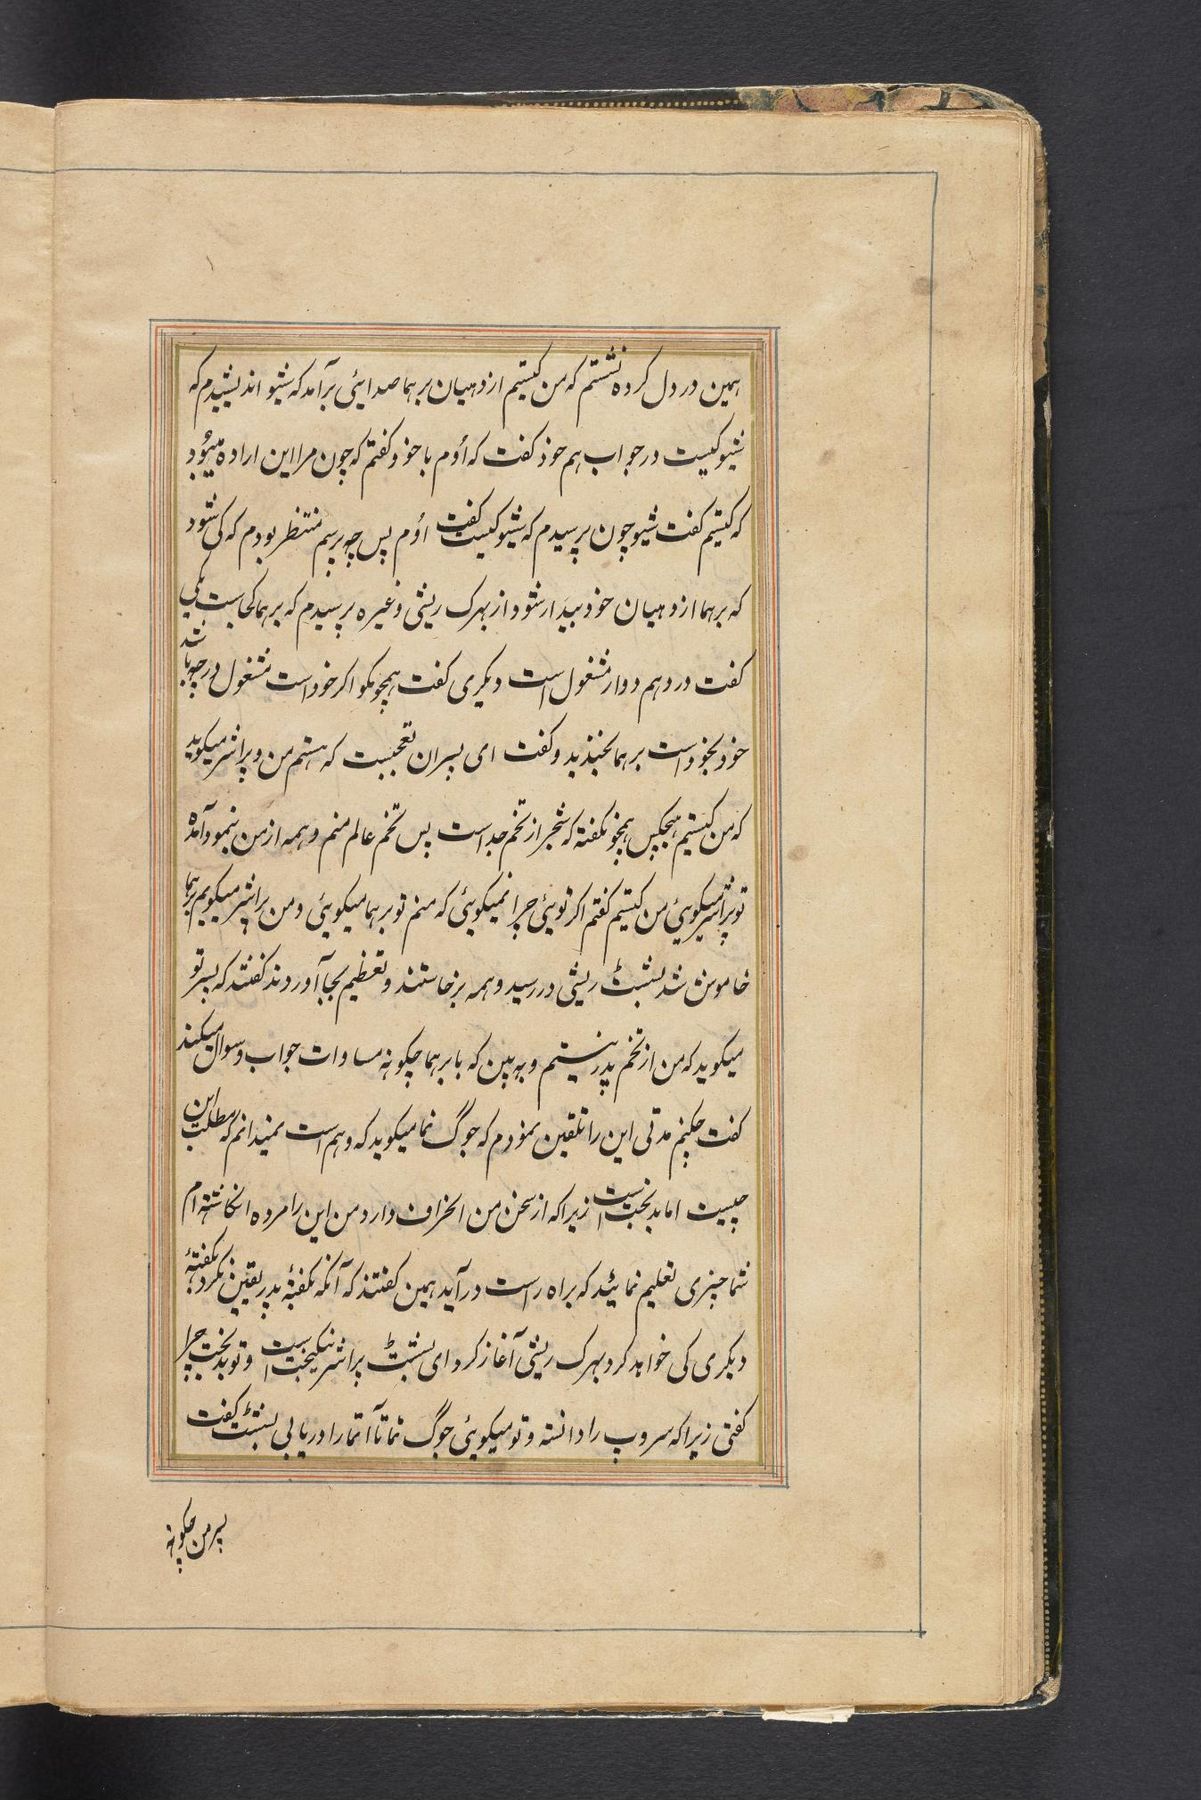 همین در دل کرده نشستم که من کیستم از دهیان برهما صدایئی برآمد که شیو اندیشیدم که
شیو کیست در جواب هم خود گفت که اُوم با خود گفتم که چون مرا این اراده میشود
که کیستم گفت شیو چون پرسیدم که شیو کیست گفت اُوم پس چه پرسم منتظر بودم که کی شود
که برهما از دهیان خود بیدار شود از بهرک ریشی و غیره پرسیدم که برهما کجاست یکی
گفت در دهم دوار مشغول است دیگری گفت همچو مگو اگر خود است مشغول در چه باشد
خود بخود است برهما بخندید و گفت ای پسران تعجبست که هستم من و پراشر میگوید
که من کیستم هیچکس همچو نگفته که شجر از تخم جداست پس تخم عالم منم و همه از من بنمود آمده
تو پراشر میگویئی من کیستم گفتم اگر تویئی چرا نمیگویئی که منم تو برهما میگویئی و من پراشر میگویم برهما
خاموش شد بشبٹ ریشی در رسید و همه برخاستند و تعظیم بجا آوردند گفتند که پسر تو
میگوید که من از تخم پدر نیستم و به بین که با برهما چگونه مساوات جواب و سوال میکند
گفت چکنم مدتی این را تلقین نمودم که جوگ نما میگوید که وهم است نمیدانم که مطلب این
چیست اما بدبخت است زیراکه از سخن من انحراف دارد من این را مرده انگاشته ام
شما چیزی تعلیم نمائید که براه راست در آید همین گفتند که آنکه بگفتهٔ پدر یقین نکرد بگفتهٔ
دیگری کی خواهد کرد بهرک ریشی آغاز کرد ای بشبٹ پراشر نیکبخت است و تو بدبخت چرا
گفتی زیراکه سروپ را دانسته و تو میگویئی جوگ نما تا آتما را دریابی بشبٹ گفت
پسر من چگونه